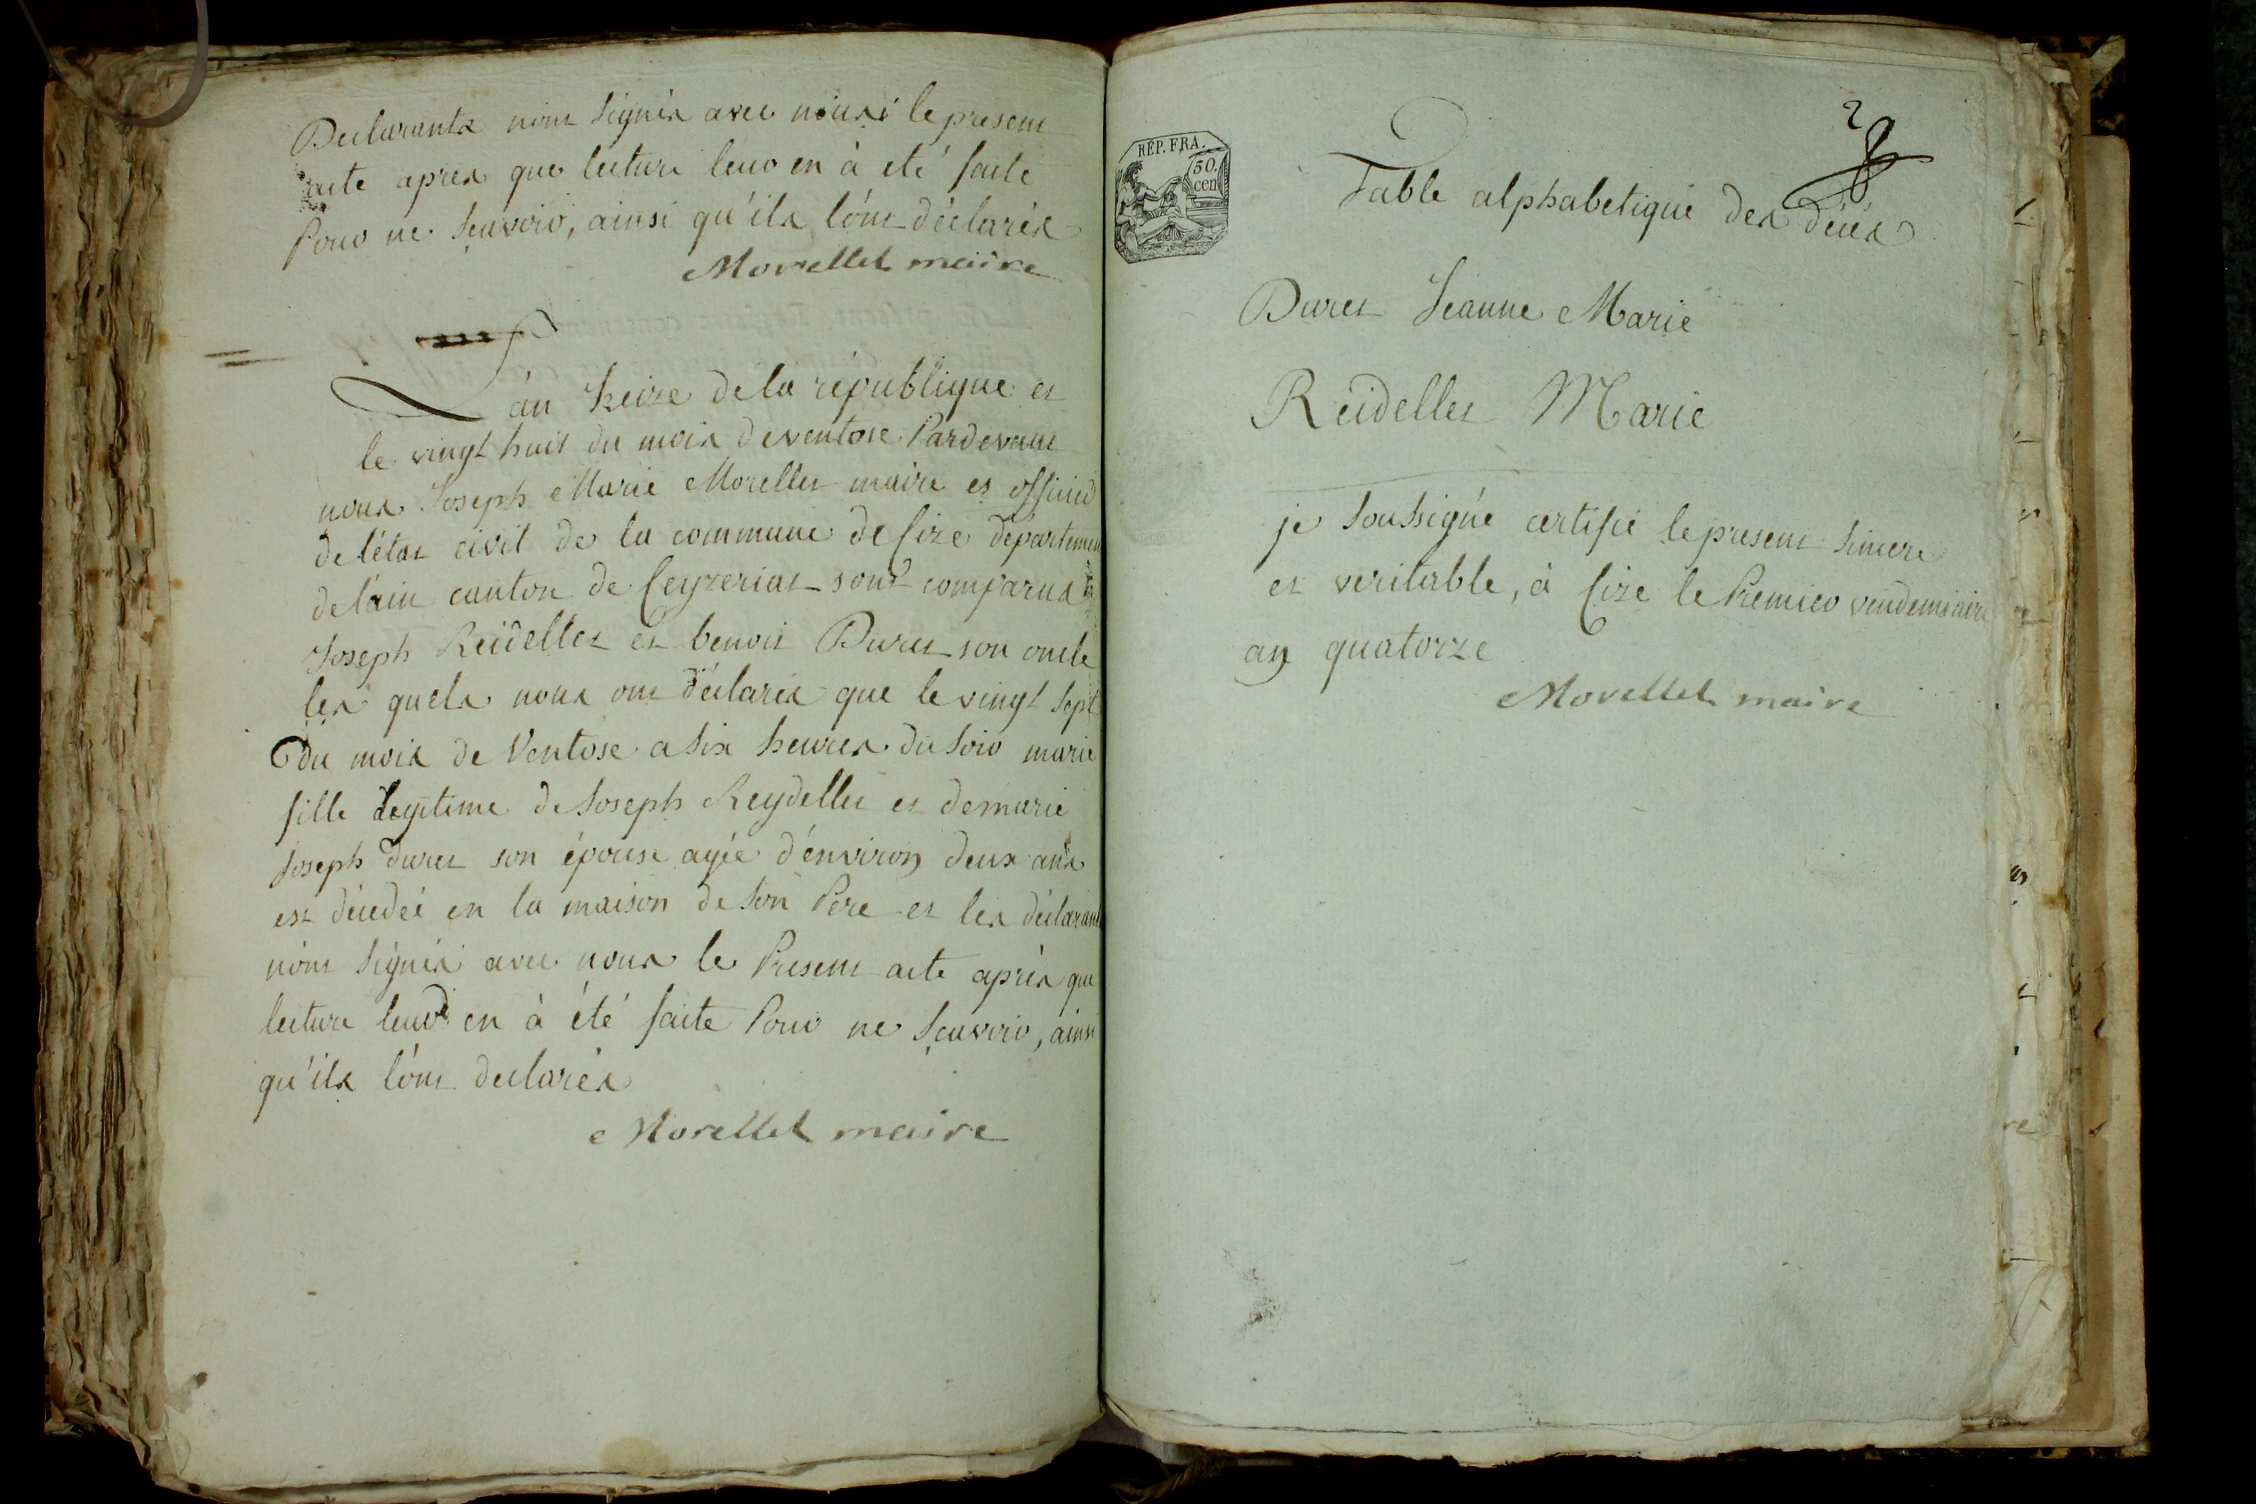 Declarants n'ont signés avec nous le present
acte apres que lecture leur en à eté faite
Pour ne sçavoir, ainsi qu'ils l'ont déclarés
Morellet maire
L'an treize de la république et
le vingt huit du mois de ventose Pardevant
nous Joseph Marie Morellet maire et officier
de l'état civil de la commune de Cize département
de l'ain canton de Ceyzeriat sont comparus
Joseph Reidellet et benoit Duret son oncle
les quels nous ont déclarés que le vingt sept
du mois de Ventose a six heures du soir marie
fille legitime de Joseph Reydellet et de marie
Joseph duret son épouse agée d'environ deux ans
est décedée en la maison de son Pere et les déclarants
n'ont signés avec nous le Present acte après que
lecture leur en à été faite Pour ne sçavoir, ainsi
qu'ils l'ont declarés
Morellet maire
RÉP. FRA.
50.
cen
Table alphabetique des décés
Duret Jeanne Marie
Reidellet Marie
je soussigné certifie le present sincere
et veritable, à Cize le Premier vendemiaire
an quatorze
Morellet maire